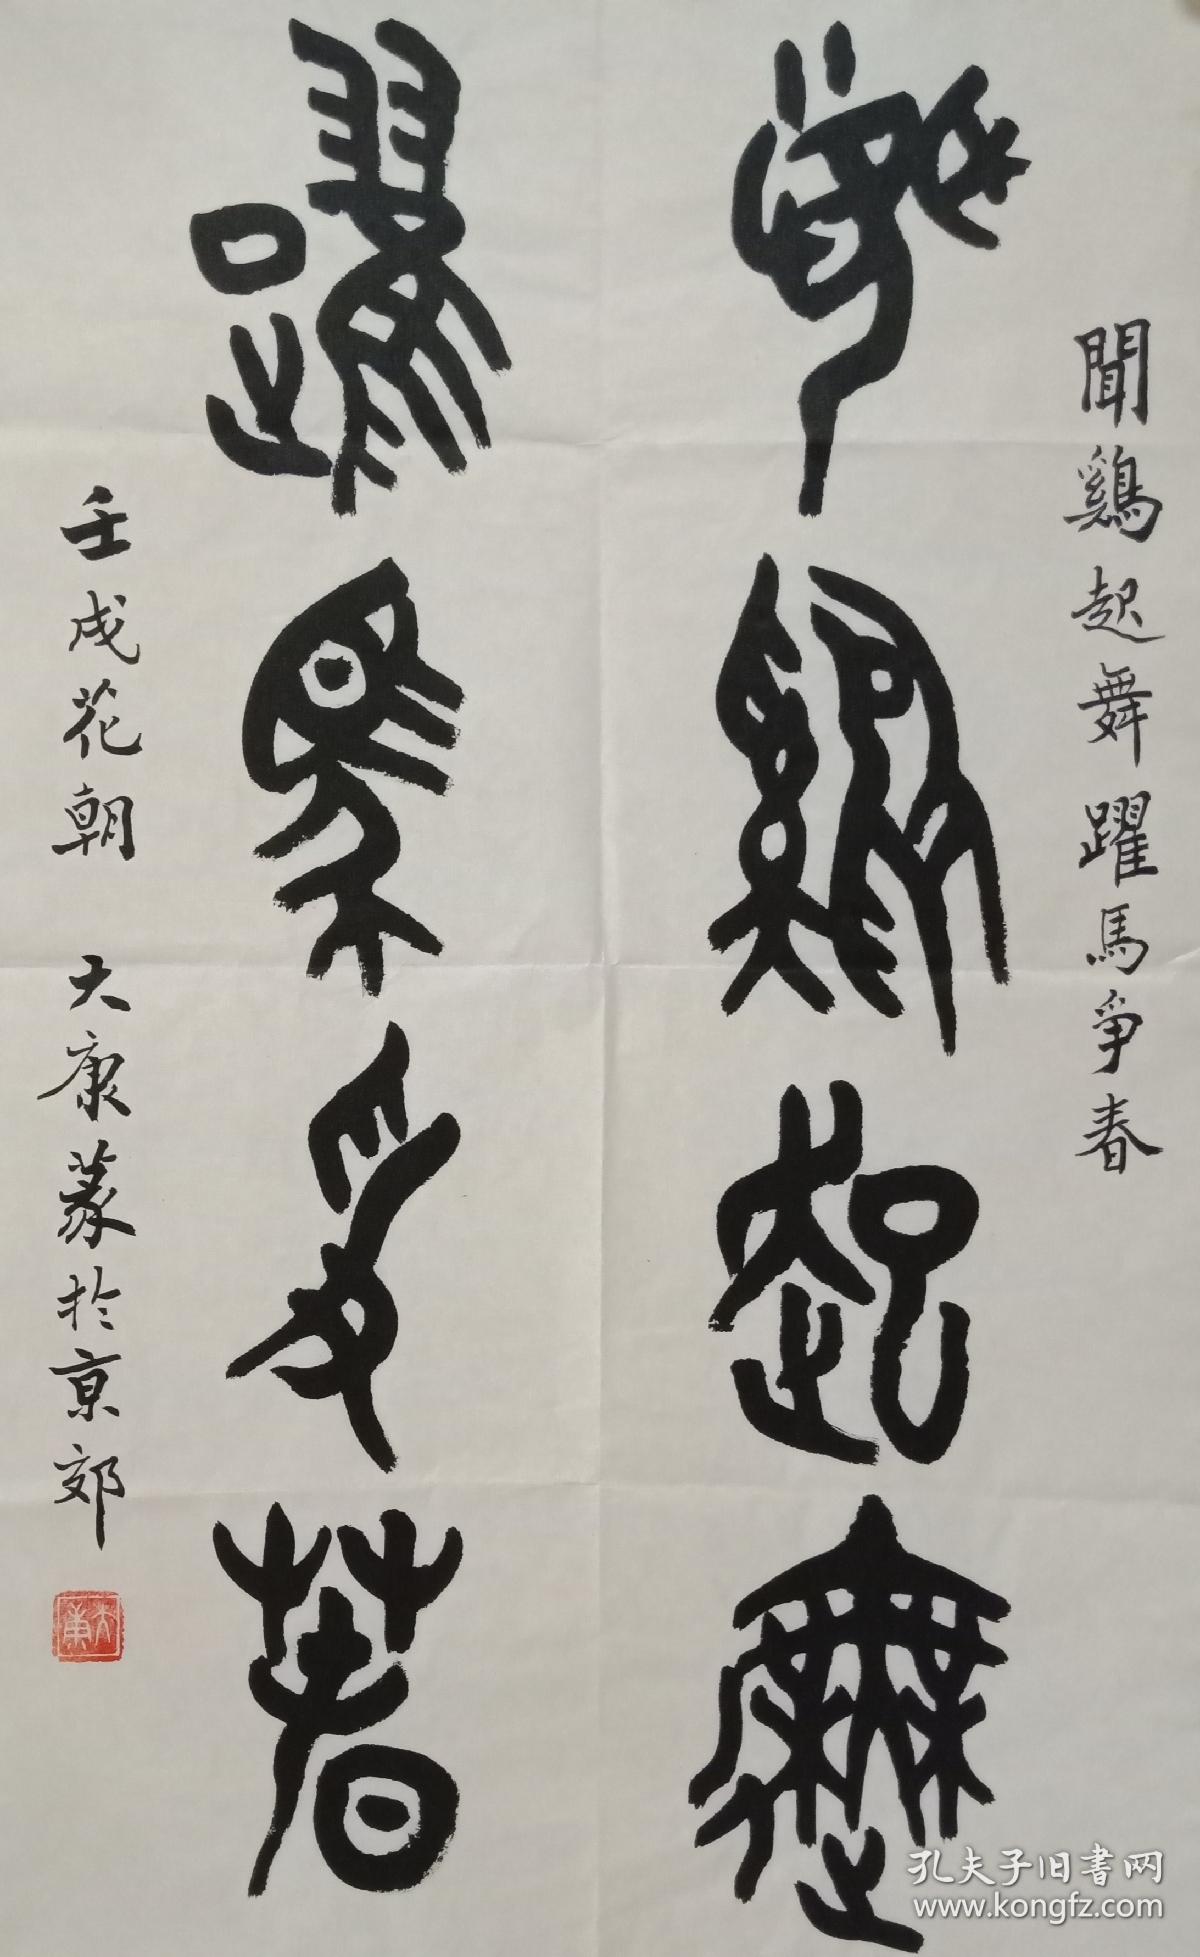 聞鷄起舞躍馬爭春
聞鷄起舞
躍馬爭春
壬戌花朝 大康篆於京郊
大康
孔夫子旧書网
www.kongfz.com